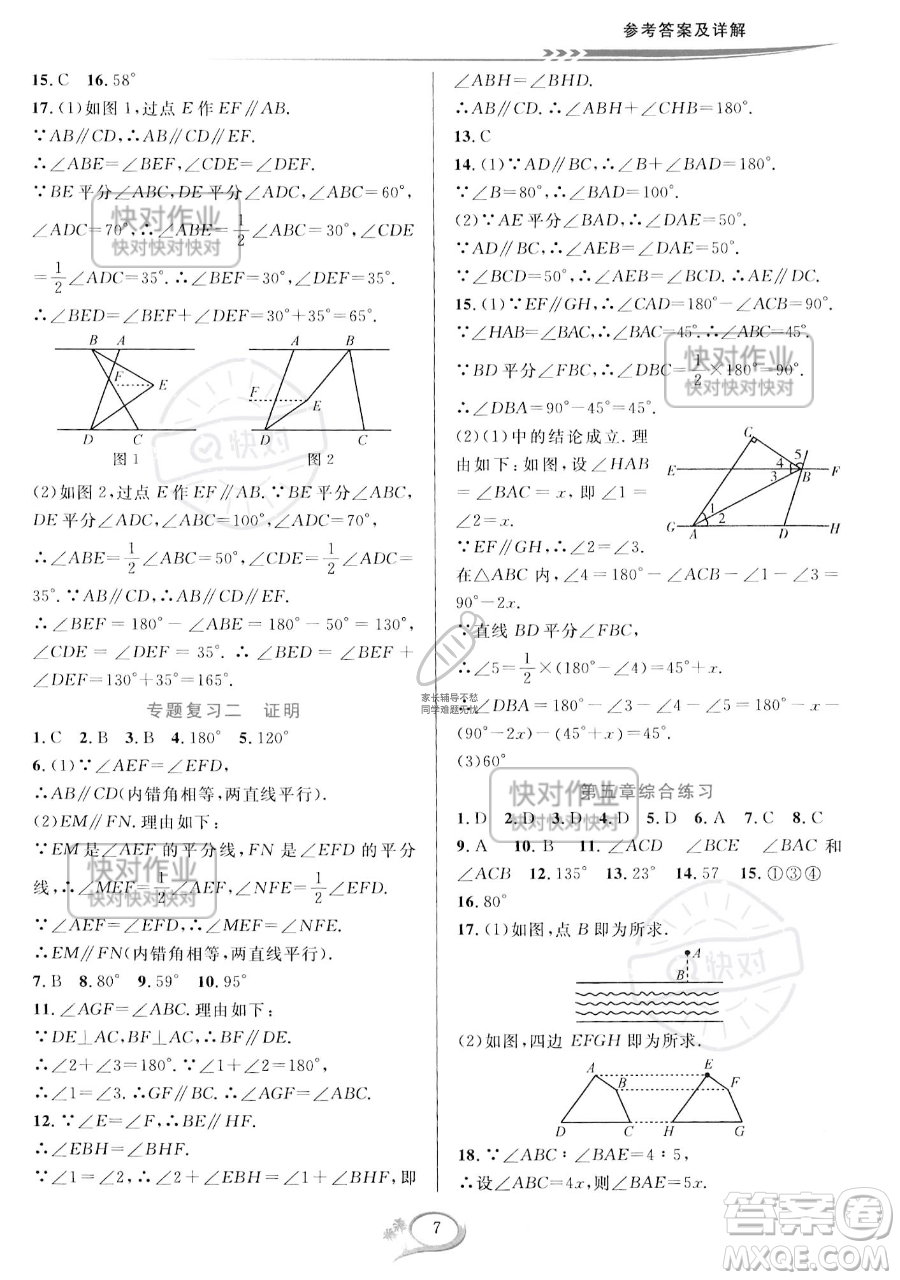 参考答案及详解
15. C  16. 58°
17. (1)如图 1,过点 E 作 EF∥AB.
∵AB∥CD,∴AB∥CD∥EF.
∴∠ABE=∠BEF,∠CDE=∠DEF.
∵BE 平分∠ABC,DE 平分∠ADC,∠ABC=60°,
∠ADC=70°,∴∠ABE=1/2∠ABC=30°,∠CDE
=1/2∠ADC=35°.∴∠BEF=30°,∠DEF=35°.
∴∠BED=∠BEF+∠DEF=30°+35°=65°.
B A F E D C
图 1
A B F E D C
图 2
(2)如图 2,过点 E 作 EF∥AB.∵BE 平分∠ABC,
DE 平分∠ADC,∠ABC=100°,∠ADC=70°,
∴∠ABE=1/2∠ABC=50°,∠CDE=1/2∠ADC=
35°.∵AB∥CD,∴AB∥CD∥EF.
∴∠BEF=180°-∠ABE=180°-50°=130°,
∠CDE=∠DEF=35°.∴∠BED=∠BEF+
∠DEF=130°+35°=165°.
专题复习二 证明
1. C  2. B  3. B  4. 180°  5. 120°
6. (1)∵∠AEF=∠EFD,
∴AB∥CD(内错角相等,两直线平行).
(2)EM∥FN.理由如下:
∵EM 是∠AEF 的平分线,FN 是∠EFD 的平分
线,∴∠MEF=1/2∠AEF,∠NFE=1/2∠EFD.
∵∠AEF=∠EFD,∴∠MEF=∠NFE.
∴EM∥FN(内错角相等,两直线平行).
7. B  8. 80°  9. 59°  10. 95°
11. ∠AGF=∠ABC.理由如下:
∵DE⊥AC,BF⊥AC,∴BF∥DE.
∴∠2+∠3=180°.∵∠1+∠2=180°,
∴∠1=∠3.∴GF∥BC.∴∠AGF=∠ABC.
12. ∵∠E=∠F,∴BE∥HF.
∴∠EBH=∠BHF.
∵∠1=∠2,∴∠EBH+∠1=∠1+∠BHF,即
∠ABH=∠BHD.
∴AB∥CD.∴∠ABH+∠CHB=180°.
13. C
14. (1)∵AD∥BC,∴∠B+∠BAD=180°.
∵∠B=80°,∴∠BAD=100°.
(2)∵AE 平分∠BAD,∴∠DAE=50°.
∵AD∥BC,∴∠AEB=∠DAE=50°.
∵∠BCD=50°,∴∠AEB=∠BCD.∴AE∥DC.
15. (1)∵EF∥GH,∴∠CAD=180°-∠ACB=90°.
∵∠HAB=∠BAC,∴∠BAC=45°.∴∠ABC=45°.
∵BD 平分∠FBC,∴∠DBC=1/2×180°=90°.
∴∠DBA=90°-45°=45°.
(2)(1)中的结论成立.理
由如下:如图,设∠HAB
=∠BAC=x,即∠1=
∠2=x.
∵EF∥GH,∴∠2=∠3.
C E F 4 5 3 B 1 2 G A D H
在△ABC 内,∠4=180°-∠ACB-∠1-∠3=
90°-2x.
∵直线 BD 平分∠FBC,
∴∠5=1/2×(180°-∠4)=45°+x.
∴∠DBA=180°-∠3-∠4-∠5=180°-x-
(90°-2x)-(45°+x)=45°.
(3)60°
第五章综合练习
1. D  2. D  3. D  4. B  5. D  6. A  7. C  8. C
9. A  10. B  11. ∠ACD  ∠BCE  ∠BAC 和
∠ACB  12. 135°  13. 23°  14. 57  15. ①③④
16. 80°
17. (1)如图,点 B 即为所求.
A
B
(2)如图,四边 EFGH 即为所求.
A B D C E F H G
18. ∵∠ABC∶∠BAE=4∶5,
∴设∠ABC=4x,则∠BAE=5x.
7
快对作业
快对快对快对
快对作业
快对快对快对
快对作业
快对快对快对
快对作业
快对快对快对
快对
快对
家长辅导不愁
同学难题无忧
答案圈
MXQE.COM